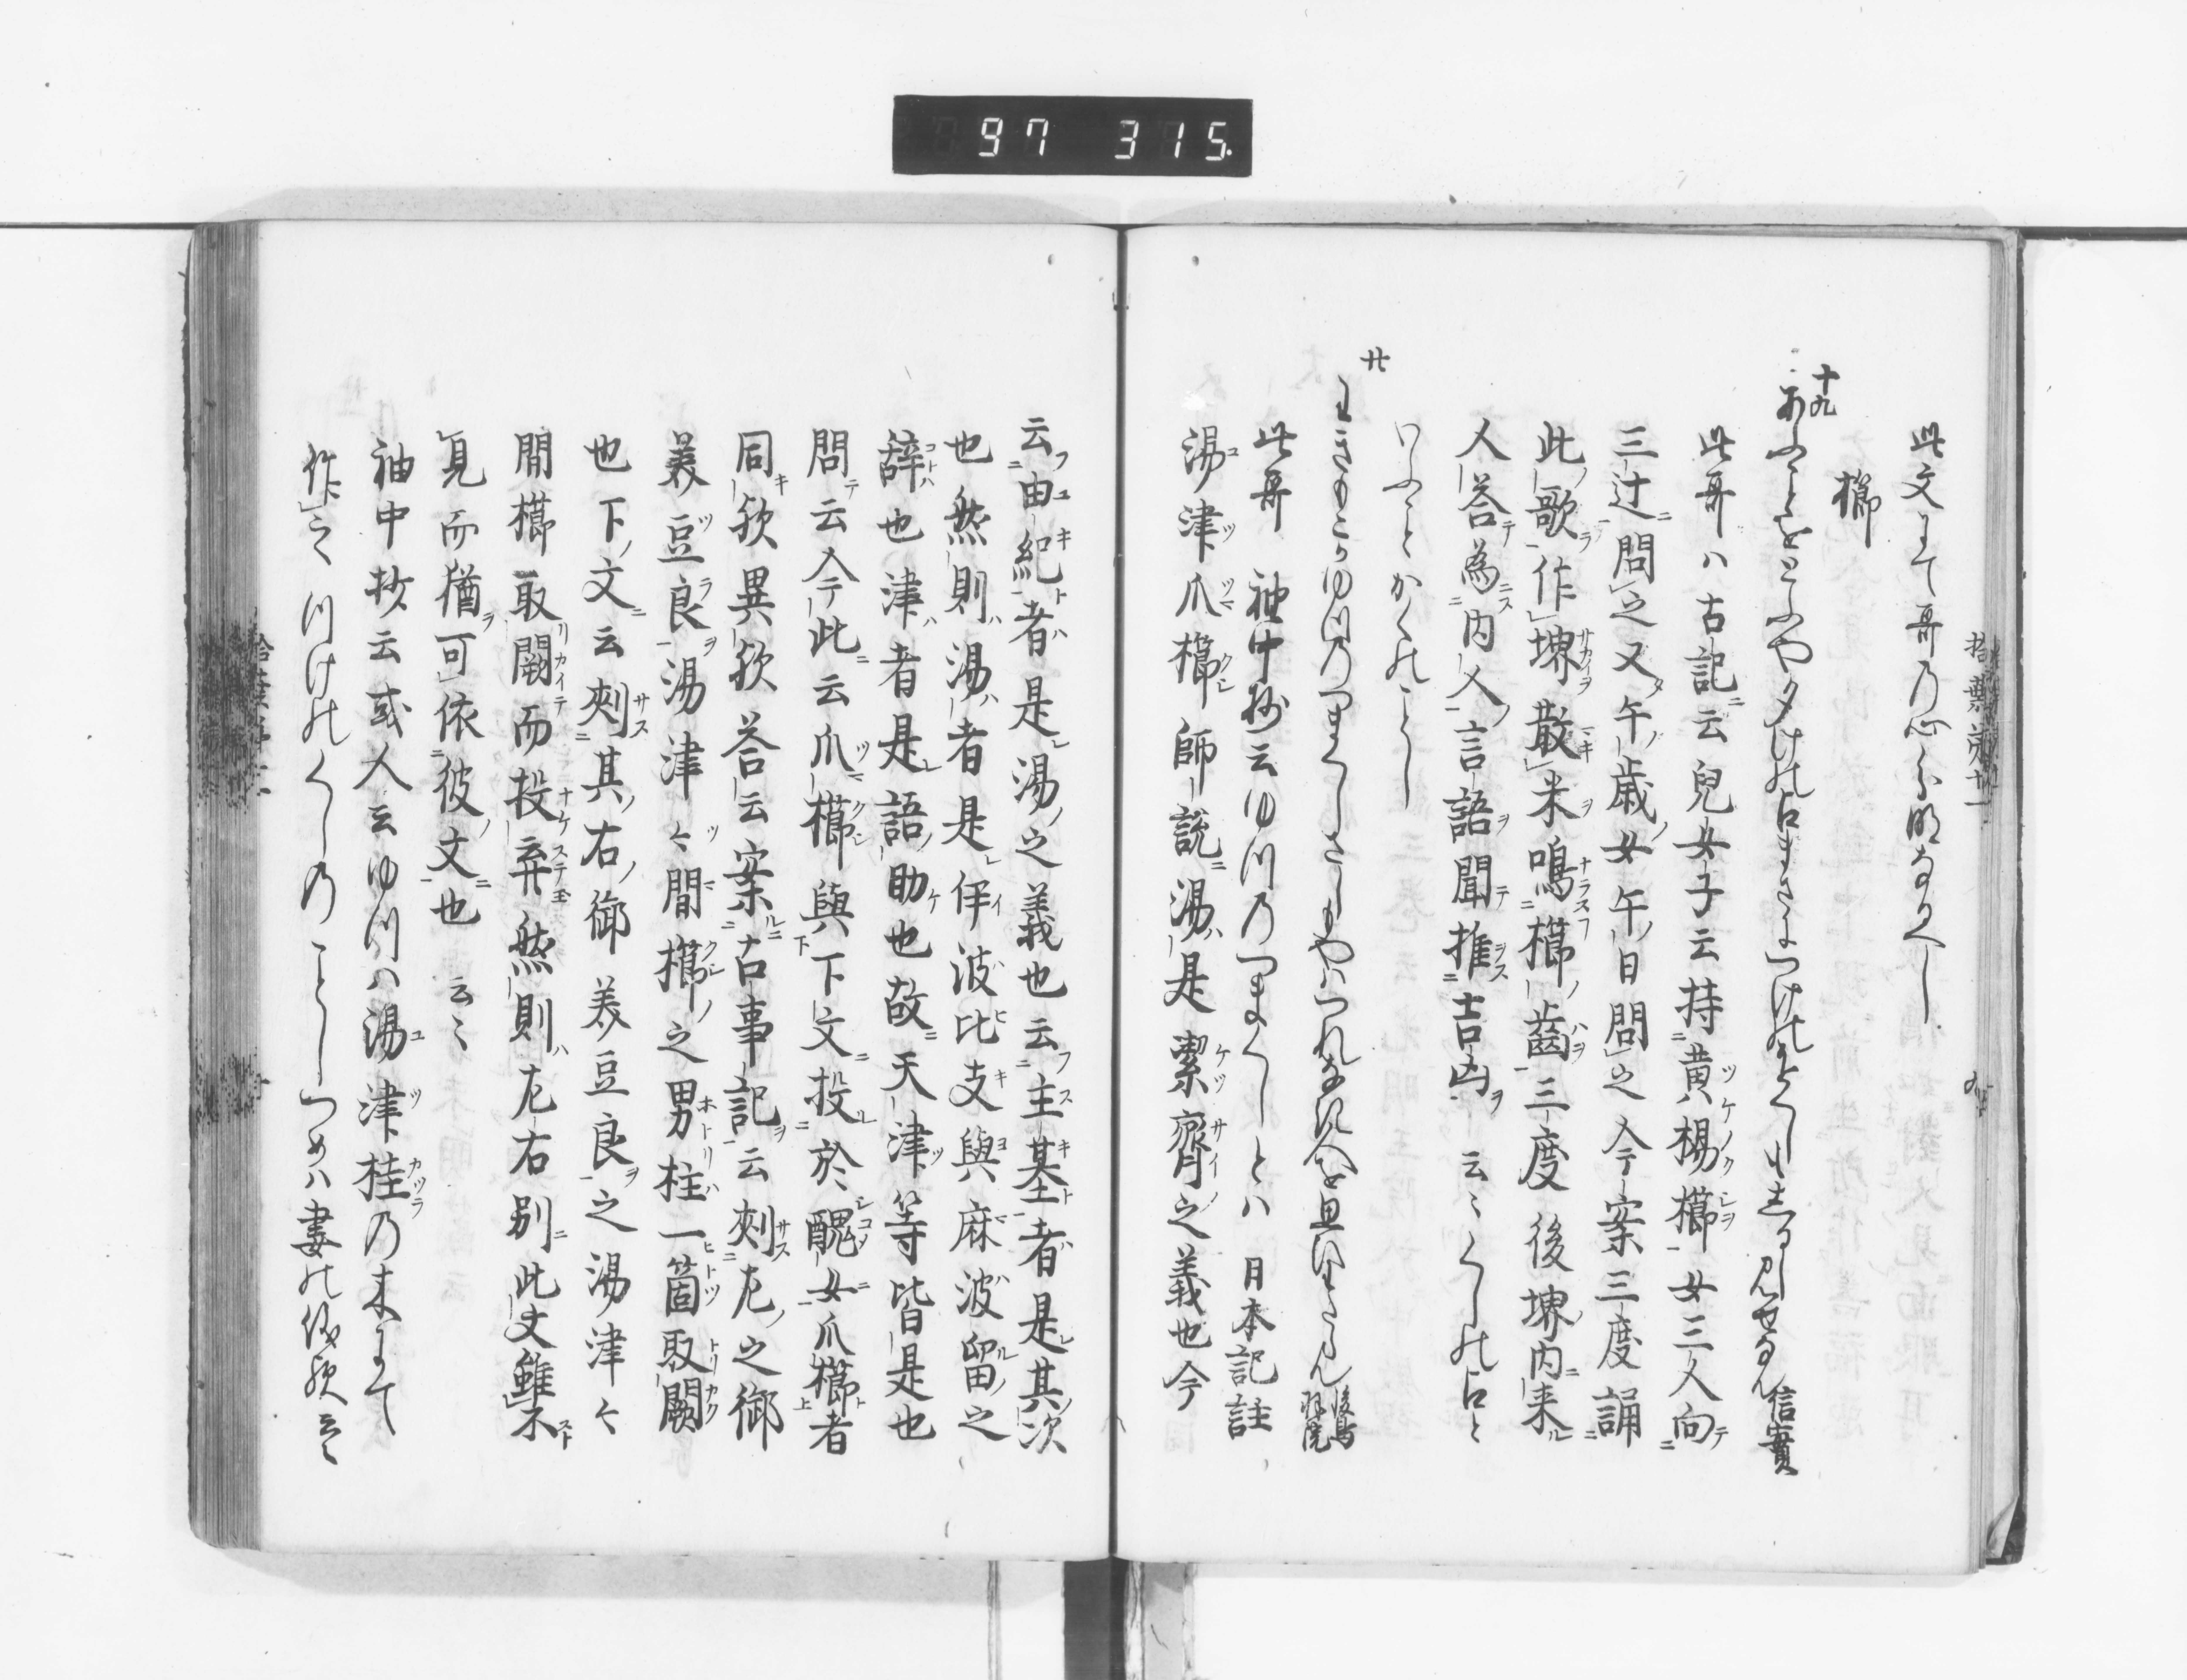 97 315.
此文にて哥乃心分明なるへし
櫛
十九
あふことをとふや夕けの占まさにつけのをくしもしるしみせなん 信實
此哥ハ古記云兒女子云持黄楊櫛女三人向
三辻問之又午歳女午日問之今案三度誦
此歌作堺散米鳴櫛齒三度後堺内来
人答為内人言語聞推吉凶云〻くしの占と
いふことかくのことし
廿
後鳥羽院
此哥 袖中抄云ゆつのつまくしとハ日本記註
湯津爪櫛師説湯是潔齋之義也今
云由紀者是湯之義也云主基者是其次
也然則湯者是伊波比支與麻波留之
辞也津者是語助也故天津等皆是也
問云今此云爪櫛與下文投於醜女爪櫛者
同欤異欤答云案古事記云刾左之御
美豆良湯津〻間櫛之男柱一箇取闕
也下文云刾其右御美豆良之湯津〻
間櫛取闕而投弃然則左右別此文雖不
見而猶可依彼文也 云〻
袖中抄云或人云ゆつハ湯津桂乃木にて
作之つけのくしのことしつめハ妻の儀欤云〻